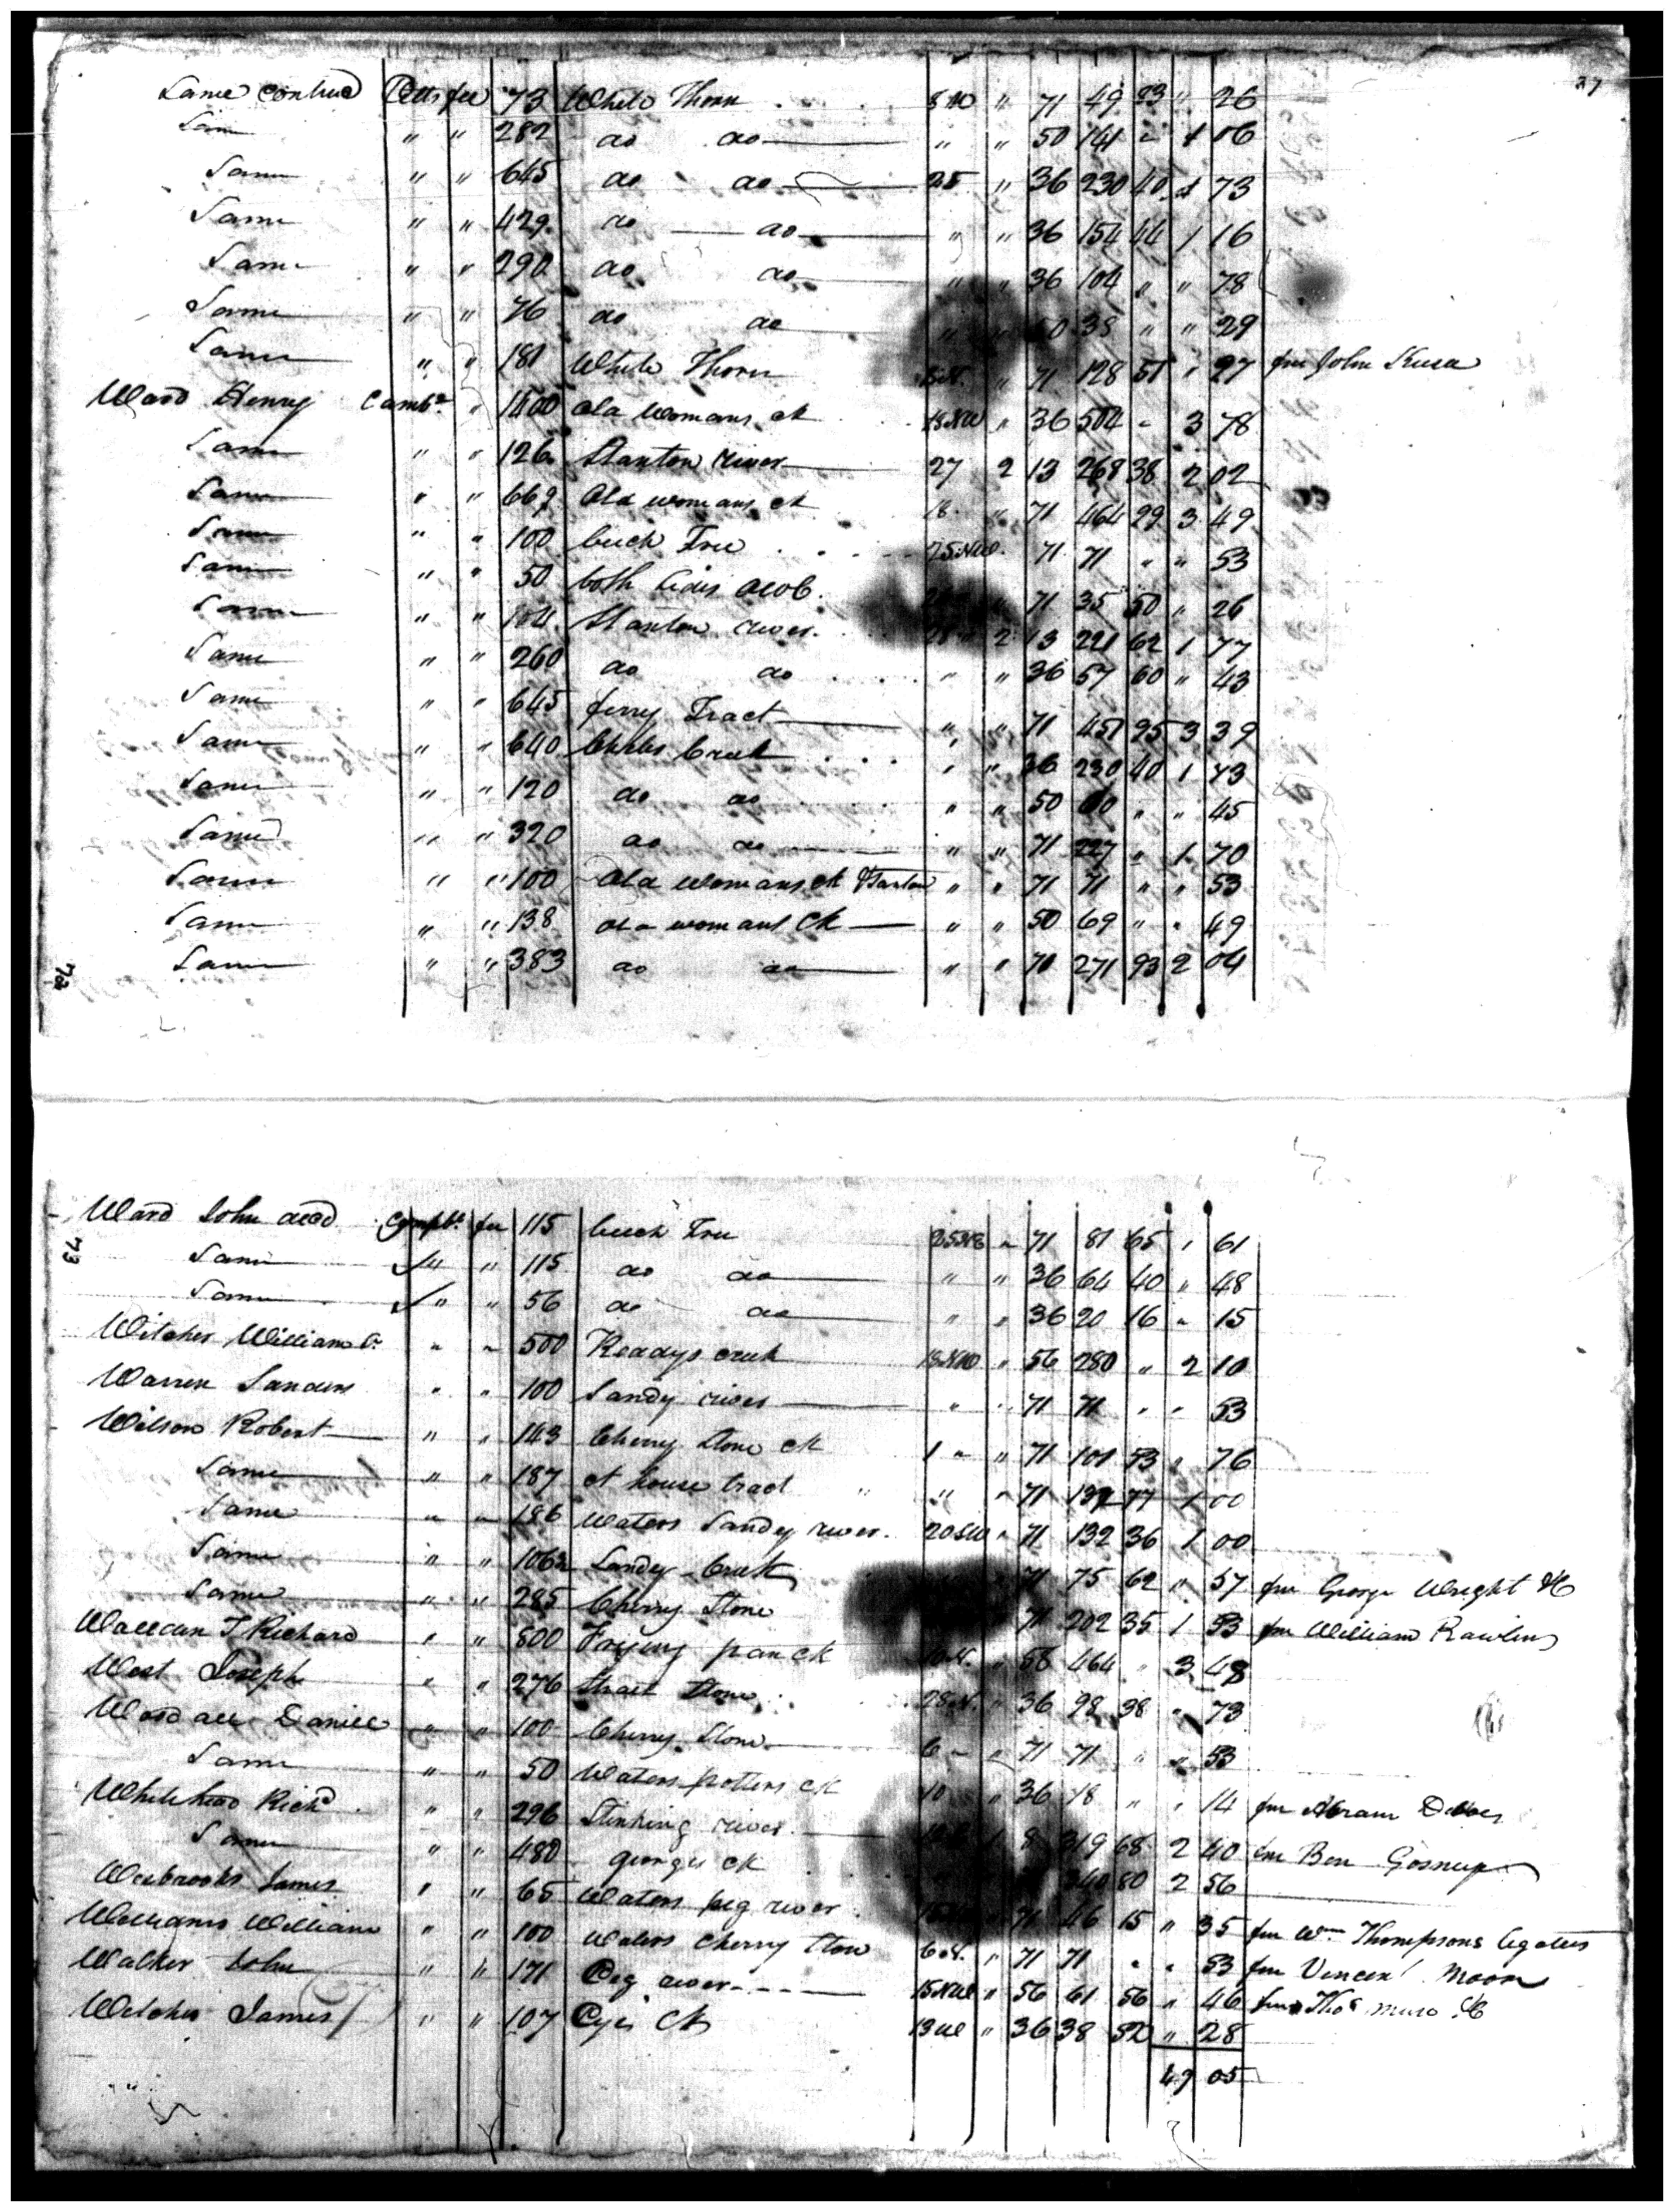 37
Same contind Pitts fee 73 White Thorn 8 W " 71 49 23 " 26
Same " " 282 do do " " 50 141 " 1 06
Same " " 645 do do 25 " 36 230 40 1 73
Same " " 429 do do " " 36 154 44 1 16
Same " " 290 do do " " 36 104 " " 78
Same " " 76 do do " " 50 38 " " 29
Same " " 181 White Thorn " 71 128 51 " 97 fm John
Ward Henry Campb. " 1400 Old womans ck 18 NW " 36 504 " 3 78
Same " " 126 Stanton river 27 2 13 268 38 2 02
Same " " 669 Old womans ck 18 " 71 464 99 3 49
Same " " 100 buck Tree 25 NW 71 71 " " 53
Same " " 50 both sides " 71 35 50 " 26
Same " " 104 Stanton river 28 2 13 221 62 1 77
Same " " 260 do do " " 36 57 60 " 43
Same " " 645 ferry Tract " " 71 451 95 3 39
Same " " 640 Creek " " 36 230 40 1 73
Same " " 120 do do " " 50 60 " " 45
Same " " 320 do do " " 71 227 " 1 70
Same " " 100 Old womans ck Stanton " " 71 71 " " 53
Same " " 138 old womans Ck " " 50 69 " " 49
Same " " 383 do do " " 71 271 93 2 04
73
Ward John decd Campb. fee 115 buck Tree 25 NE " 71 81 65 " 61
Same " " 115 do do " " 36 64 40 " 48
Same " " 56 do do " " 36 20 16 " 15
Witcher William Sr " " 500 Readys creek 18 NW " 56 280 " 2 10
Warren Sanders " " 100 Sandy river " " 71 71 " " 53
Wilson Robert " " 143 Cherry Stone ck 1 " " 71 101 53 " 76
Same " " 187 ct house tract " " 71 132 77 1 00
Same " " 186 Waters Sandy river 20 SW " 71 132 36 1 00
Same " " 106½ Sandy Creek 71 75 62 " 57 fm George Wright &C
Same " " 285 Cherry Stone 71 202 35 1 53 fm William Rawlins
Richard " " 800 Frying pan ck 10 N. " 58 464 " 3 48
West Joseph " " 276 Strait Stone 28 N. " 36 98 38 " 73
Daniel " " 100 Cherry Stone 6 " " 71 71 " " 53
Same " " 50 Waters potters ck 10 " 36 18 " " 14 fm Abram
Whitehead Richd " " 296 Stinking river 1 8 319 68 2 40 fm Ben
Same " " 480 georges ck 340 80 2 56
Wesbrooks James " " 65 Waters pig river 71 46 15 " 35 fm Wm Thompsons legatees
Williams William " " 100 Waters Cherry Stone 6 N. " 71 71 " " 53 fm Vincent Moon
Walker John " " 171 Pig river 15 NW " 56 61 56 " 46 fm Thos &C
Witcher James " " 107 Pyes Ck 13 W " 36 38 52 " 28
49 05